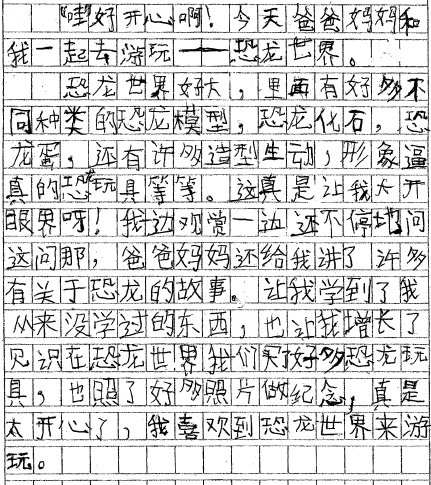 “哇”好开心啊！今天爸爸妈妈和
我一起去游玩——恐龙世界。
恐龙世界好大，里面有好多不
同种类的恐龙模型，恐龙化石，恐
龙蛋，还有许多造型生动，形象逼
真的恐龙玩具等等。这真是让我大开
眼界呀！我边观赏一边还不停地问
这问那，爸爸妈妈还给我讲了许多
有关于恐龙的故事。让我学到了我
从来没学过的东西，也让我增长了
见识在恐龙世界我们买了好多恐龙玩
具，也照了好多照片做纪念，真是
太开心了，我喜欢到恐龙世界来游
玩。